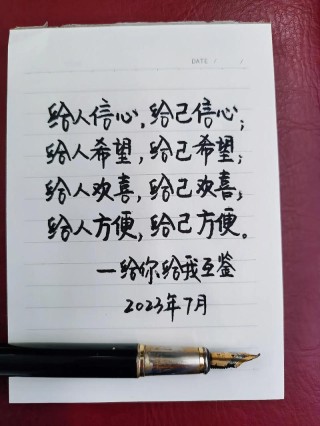 DATE / /
给人信心，给己信心；
给人希望，给己希望；
给人欢喜，给己欢喜；
给人方便，给己方便。
—给你给我互鉴
2023年7月